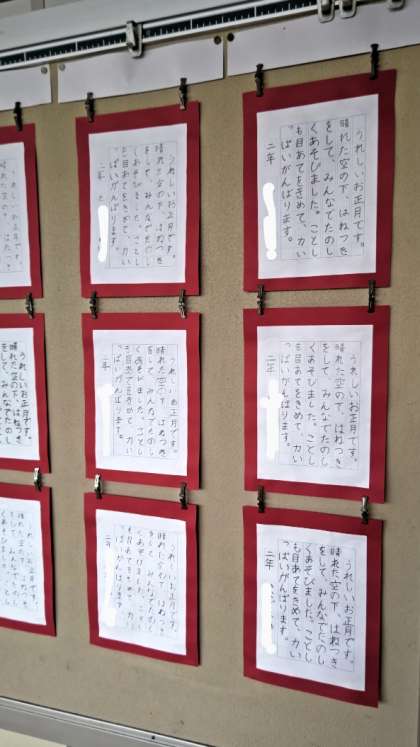 うれしいお正月です。
晴れた空の下、はねつき
をして、みんなでたのし
くあそびました。ことし
も目あてをきめて、力い
っぱいがんばります。
二年
うれしいお正月です。
晴れた空の下、はねつき
をして、みんなでたのし
くあそびました。ことし
も目あてをきめて、力い
っぱいがんばります。
二年
うれしいお正月です。
晴れた空の下、はねつき
をして、みんなでたのし
くあそびました。ことし
も目あてをきめて、力い
っぱいがんばります。
二年
うれしいお正月です。
晴れた空の下、はねつき
をして、みんなでたのし
くあそびました。ことし
も目あてをきめて、力い
っぱいがんばります。
二年
うれしいお正月です。
晴れた空の下、はねつき
をして、みんなでたのし
くあそびました。ことし
も目あてをきめて、力い
っぱいがんばります。
二年
うれしいお正月です。
晴れた空の下、はねつき
をして、みんなでたのし
くあそびました。ことし
も目あてをきめて、力い
っぱいがんばります。
二年
うれしいお正月です。
晴れた空の下、はねつき
をして、みんなでたのし
うれしいお正月です。
晴れた空の下、はねつき
をして、みんなでたのし
くあそびました。ことし